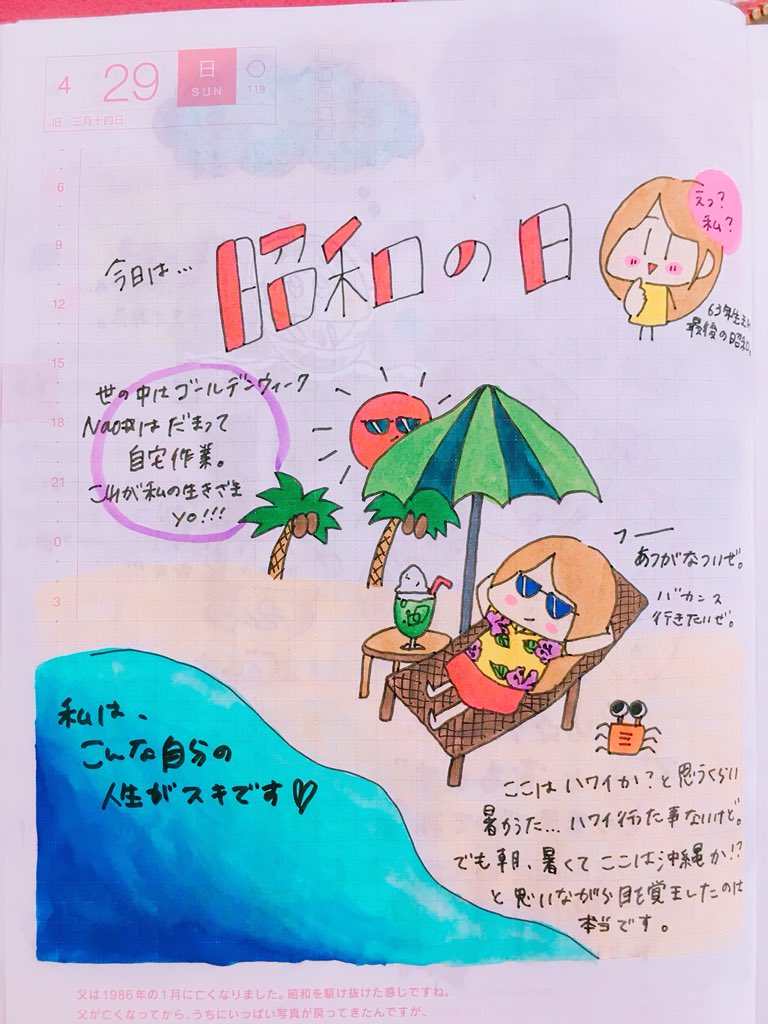 4 29 日 SUN 119
旧：三月十四日
6
9
12
15
18
21
0
3
今日は…
昭和の日
えっ？
私？
63年生まれ
最後の昭和。
世の中はゴールデンウィーク
Naoはだまって
自宅作業。
これが私の生きざま
yo!!!
フー
あつがなついぜ。
バカンス
行きたいぜ。
私は、
こんな自分の
人生がスキです♡
ここはハワイか？と思うくらい
暑かった…ハワイ行った事ないけど。
でも朝、暑くてここは沖縄か!?
と思いながら目を覚ましたのは
本当です。
父は1986年の1月に亡くなりました。昭和を駆け抜けた感じですね。
父が亡くなってから、うちにいっぱい写真が戻ってきたんですが、